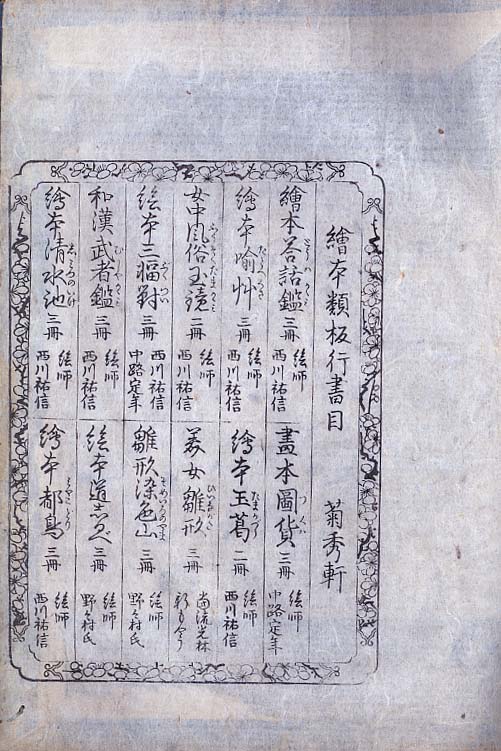 繪本類板行書目 菊秀軒
繪本答話鑑 三冊 絵師 西川祐信
畫本圖貨 三冊 絵師 中路定年
繪本喩艸 三冊 絵師 西川祐信
繪本玉葛 二冊 絵師 西川祐信
女中風俗玉鏡 二冊 絵師 西川祐信
美女雛形 三冊 當流光林
絵本三福對 三冊 絵師 西川祐信 中路定年
雛形染色山 三冊 絵師 野々村氏
和漢武者鑑 三冊 絵師 西川祐信
絵本道志るべ 三冊 絵師 野々村氏
繪本清水池 三冊 絵師 西川祐信
繪本都鳥 三冊 絵師 西川祐信